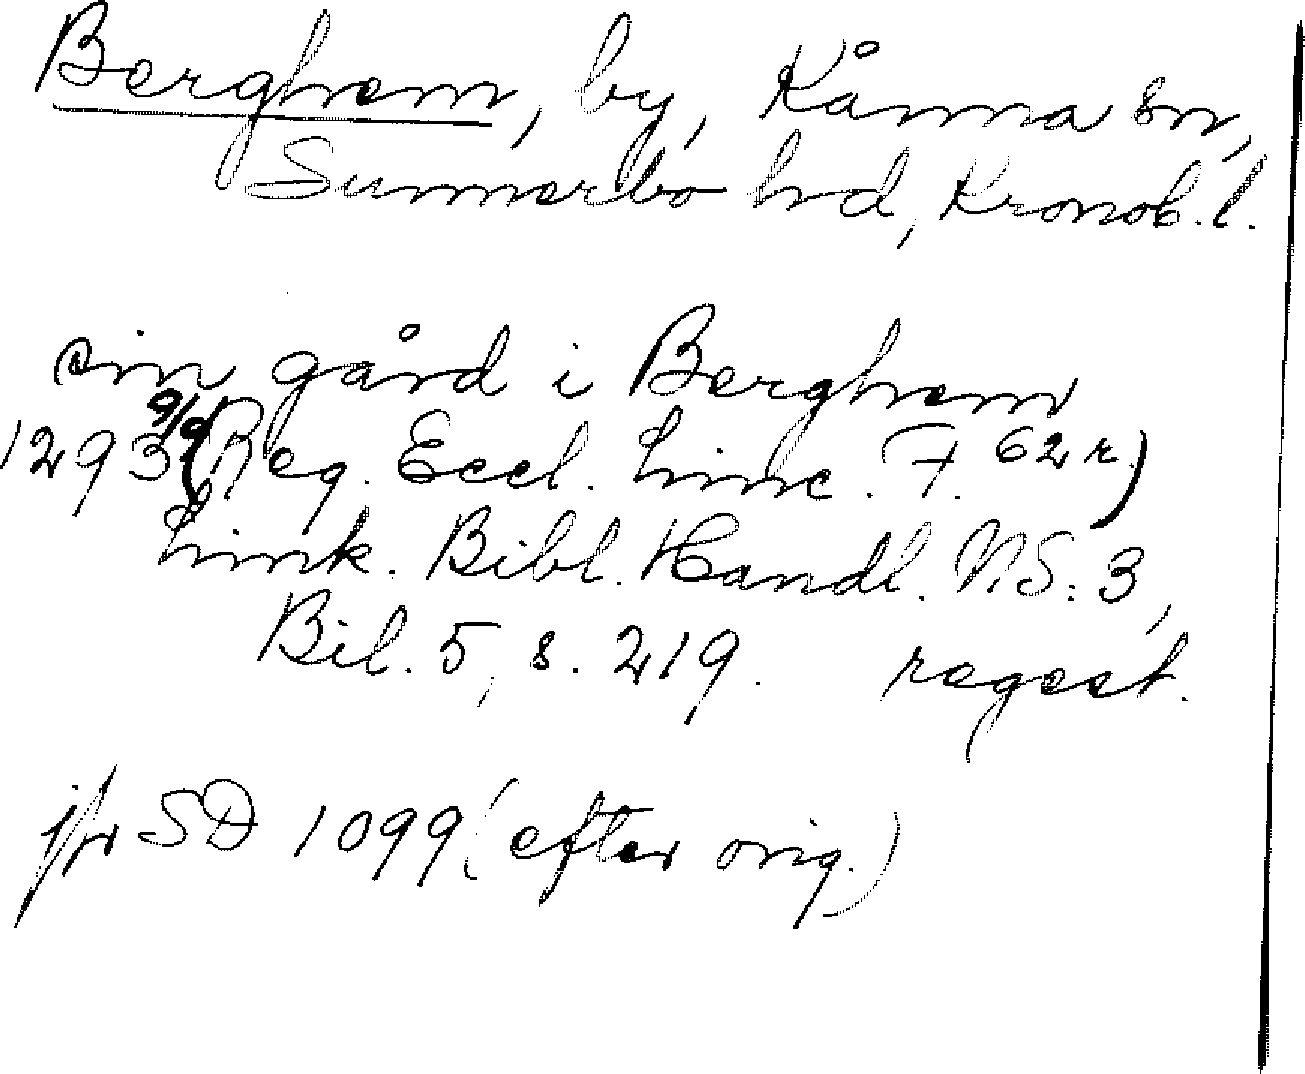 Berghem, by, Kånna sn,
Sunnerbo hd, Kronob. l.
sin gård i Berghem
1293 9/9 (Reg. Eccl. Linc. F. 62 r.)
Link. Bibl. Handl. NS: 3,
Bil. 5, s. 219. regest.
jfr SD 1099 (efter orig.)